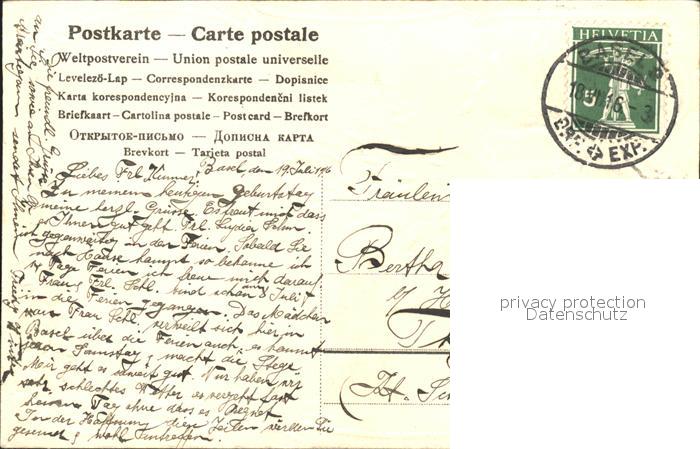 Postkarte — Carte postale
Weltpostverein — Union postale universelle
Levelező-Lap — Correspondenzkarte — Dopisnice
Karta korespondencyjna — Korespondenční listek
Briefkaart — Cartolina postale — Post card — Brefkort
ОТКРЫТОЕ-ПИСЬМО — ДОПИСНА КАРТА
Brevkort — Tarjeta postal
HELVETIA
BASEL
EXP.
Liebes Frl.
Basel, den 19. Juli 1916
Zu meinem heutigen Geburtstag
meine herzl. Grüsse. Es freut mich dass
es Ihnen gut geht. Frl. Lydia
ist gegenwärtig in den Ferien. Sobald Sie
nach Hause kommt so bekomme ich
14 Tage Ferien ich freue mich darauf
Frau & Frl. Schl. sind schon am 8 Juli
in die Ferien gegangen. Das Mädchen
von Frau Schl. verweilt sich hier in
Basel über die Ferien auch, es kommt
jeden Samstag & macht die Stege.
Mir geht es soweit gut. Wir haben
sehr schlechtes Wetter es vergeht fast
keinen Tag ohne dass es Regnet
In der Hoffnung diese Zeilen werden Sie
gesund & wohl antreffen.
Fräulein
Bertha
privacy protection
Datenschutz